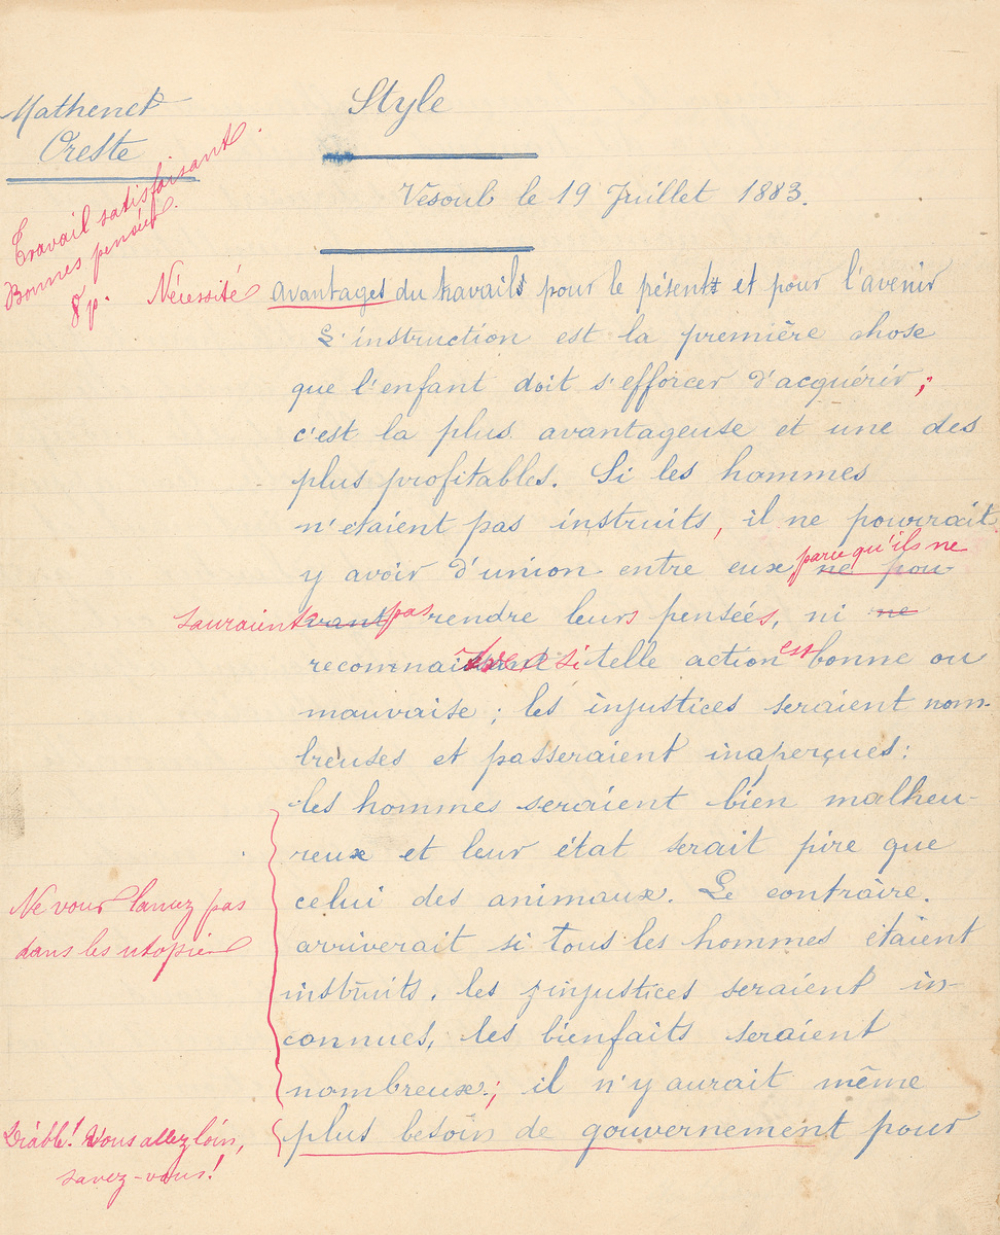 Mathenet
Oreste
Style
Travail satisfaisant.
Bonnes pensées.
8 p.
Vesoul le 19 Juillet 1883.
Nécessité avantages du travail pour le présent et pour l'avenir
L'instruction est la première chose
que l'enfant doit s'efforcer d'acquérir;
c'est la plus avantageuse et une des
plus profitables. Si les hommes
n'étaient pas instruits, il ne pourrait
y avoir d'union entre eux parce qu'ils ne ne pou-
sauraient vant pas rendre leurs pensées, ni ne
reconnai si telle action est bonne ou
mauvaise; les injustices seraient nom-
breuses et passeraient inaperçues:
les hommes seraient bien malheu-
reux et leur état serait pire que
celui des animaux. Le contraire
Ne vous lancez pas
dans les utopies
arriverait si tous les hommes étaient
instruits, les injustices seraient in-
connues, les bienfaits seraient
nombreux; il n'y aurait même
plus besoin de gouvernement pour
Diable! Vous allez loin,
savez-vous!